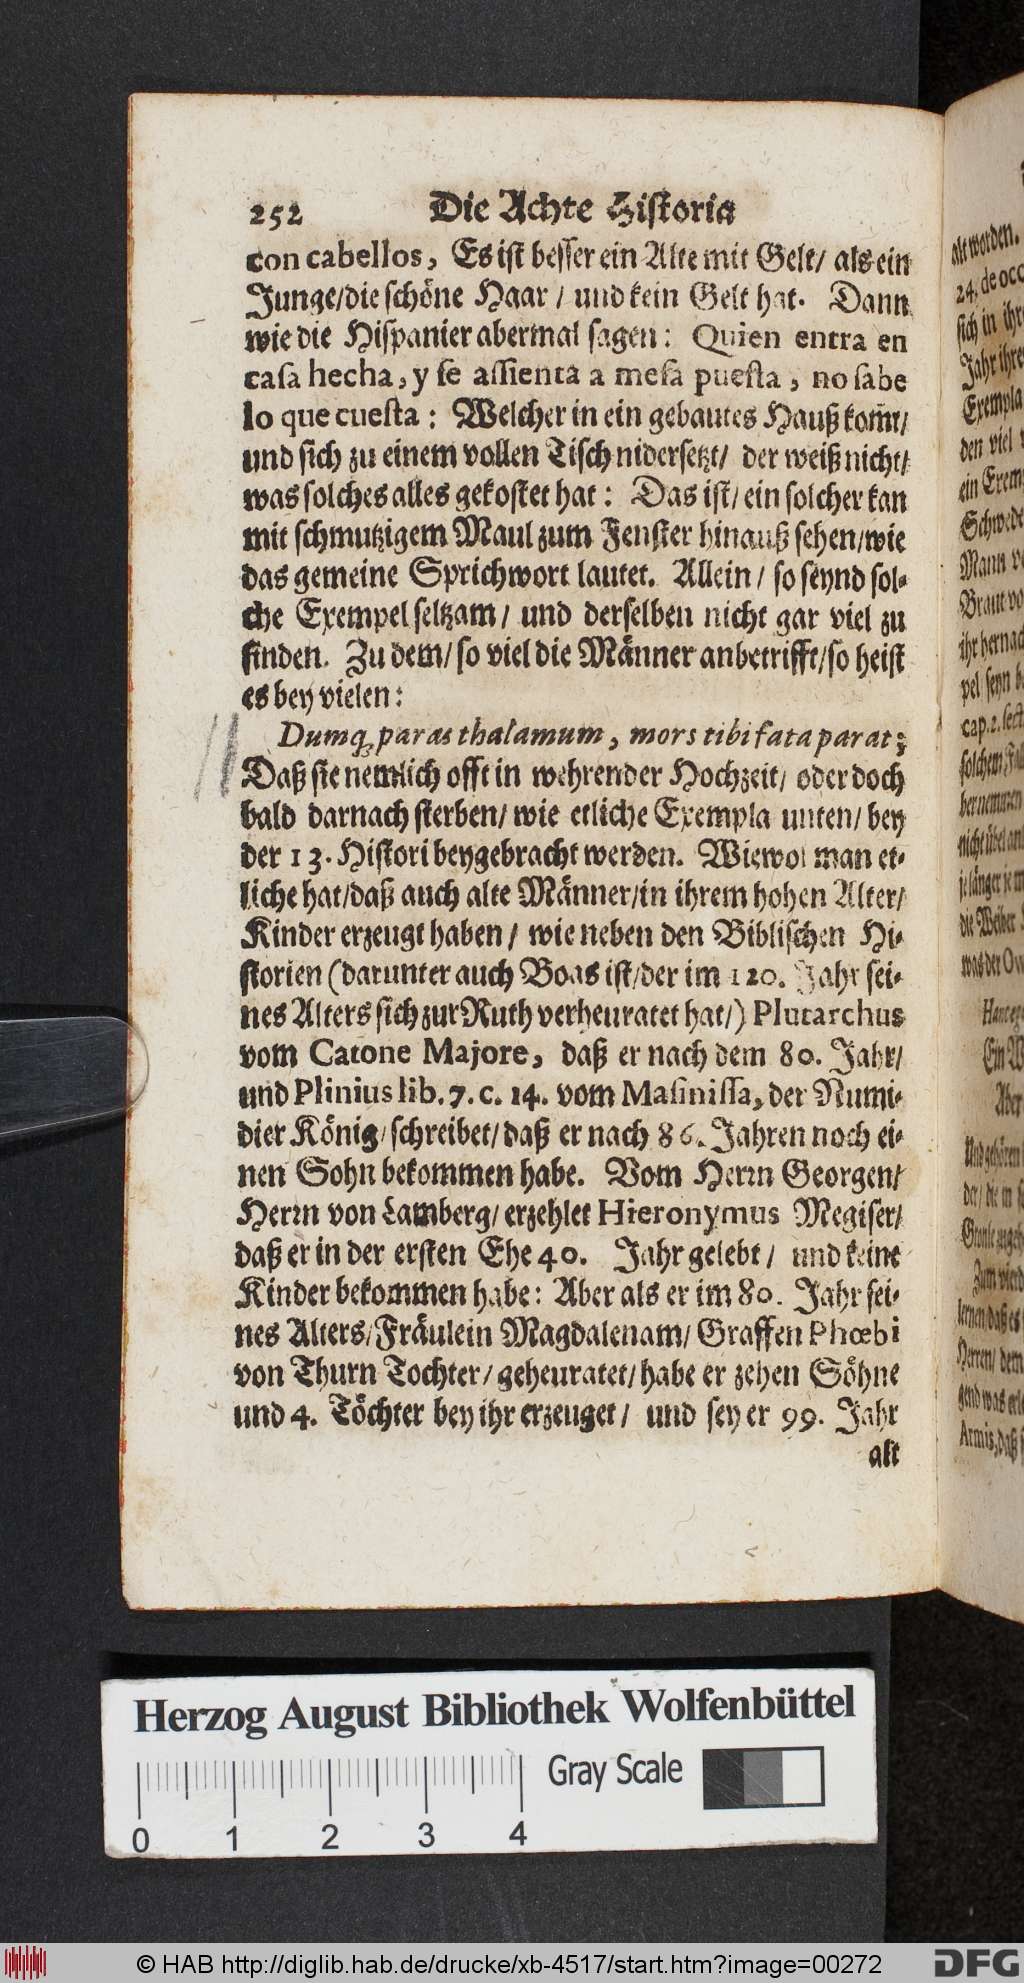 252 Die Achte Historia
con cabellos, Es ist besser ein Alte mit Gelt/ als ein
Junge/die schöne Haar / und kein Gelt hat. Dann
wie die Hispanier abermal sagen: Quien entra en
casa hecha, y se assienta a mesa puesta, no sabe
lo que cuesta: Welcher in ein gebautes Hauß kom̃t/
und sich zu einem vollen Tisch nidersetzt/ der weiß nicht/
was solches alles gekostet hat: Das ist/ ein solcher kan
mit schmutzigem Maul zum Fenster hinauß sehen/wie
das gemeine Sprichwort lautet. Allein / so seynd sol-
che Exempel seltzam/ und derselben nicht gar viel zu
finden. Zu dem/ so viel die Männer anbetrifft/so heist
es bey vielen:
Dumq; paras thalamum, mors tibi fata parat;
Daß sie nemlich offt in wehrender Hochzeit/ oder doch
bald darnach sterben/ wie etliche Exempla unten/ bey
der 13. Histori beygebracht werden. Wiewol man et-
liche hat/daß auch alte Männer/in ihrem hohen Alter/
Kinder erzeugt haben / wie neben den Biblischen Hi-
storien (darunter auch Boas ist/der im 120. Jahr sei-
nes Alters sich zur Ruth verheuratet hat/) Plutarchus
vom Catone Majore, daß er nach dem 80. Jahr/
und Plinius lib. 7. c. 14. vom Masinissa, der Numi-
dier König/ schreibet/ daß er nach 86. Jahren noch ei-
nen Sohn bekommen habe. Vom Herrn Georgen/
Herrn von Lamberg/ erzehlet Hieronymus Megiser/
daß er in der ersten Ehe 40. Jahr gelebt / und keine
Kinder bekommen habe: Aber als er im 80. Jahr sei-
nes Alters/Fräulein Magdalenam/ Graffen Phœbi
von Thurn Tochter/ geheuratet/ habe er zehen Söhne
und 4. Töchter bey ihr erzeuget / und sey er 99. Jahr
alt
alt worden.
24. de
sich in
Jahr
den viel
ein
Mann
Braut
ihr hernach
pel seyn
cap. 2.
solchem
nicht übel
je länger je
die Weiber
was der
Ein
Aber
Und gehören
der/ die
Zum
lernen/daß es
Herren/ dem
gend was
Armis, daß
Herzog August Bibliothek Wolfenbüttel
Gray Scale
0 1 2 3 4
© HAB http://diglib.hab.de/drucke/xb-4517/start.htm?image=00272
DFG